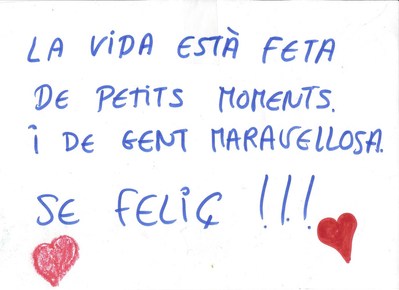 LA VIDA ESTÀ FETA
DE PETITS MOMENTS.
I DE GENT MARAVELLOSA.
SE FELIÇ !!!